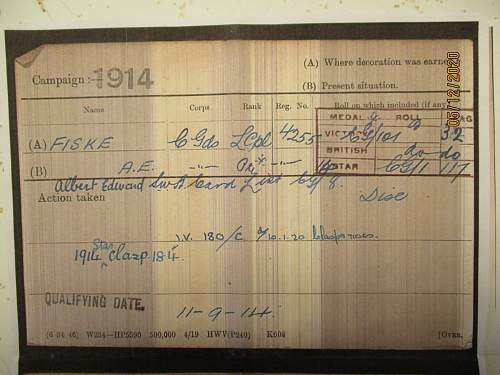 (A) Where decoration was earned
Campaign:— 1914
(B) Present situation.
Name Corps Rank Reg. No. Roll on which included (if any)
MEDAL ROLL PAG
(A) FISKE C Gds L Cpl 4255 VICTORY CG/101 B 32
BRITISH do do
(B) A.E. —"— Pte —"— 14 STAR CG/1 117
Albert Edward S.W.B. Card List CG/8.
Action taken Disc
I.V. 180/C d/10.1.20 Clasp roses.
1914 Star Clasp. 184.
QUALIFYING DATE. 11-9-14.
(6 34 46) W234—HP5590 500,000 4/19 HWV(P240) K608 [OVER.
05/12/2020